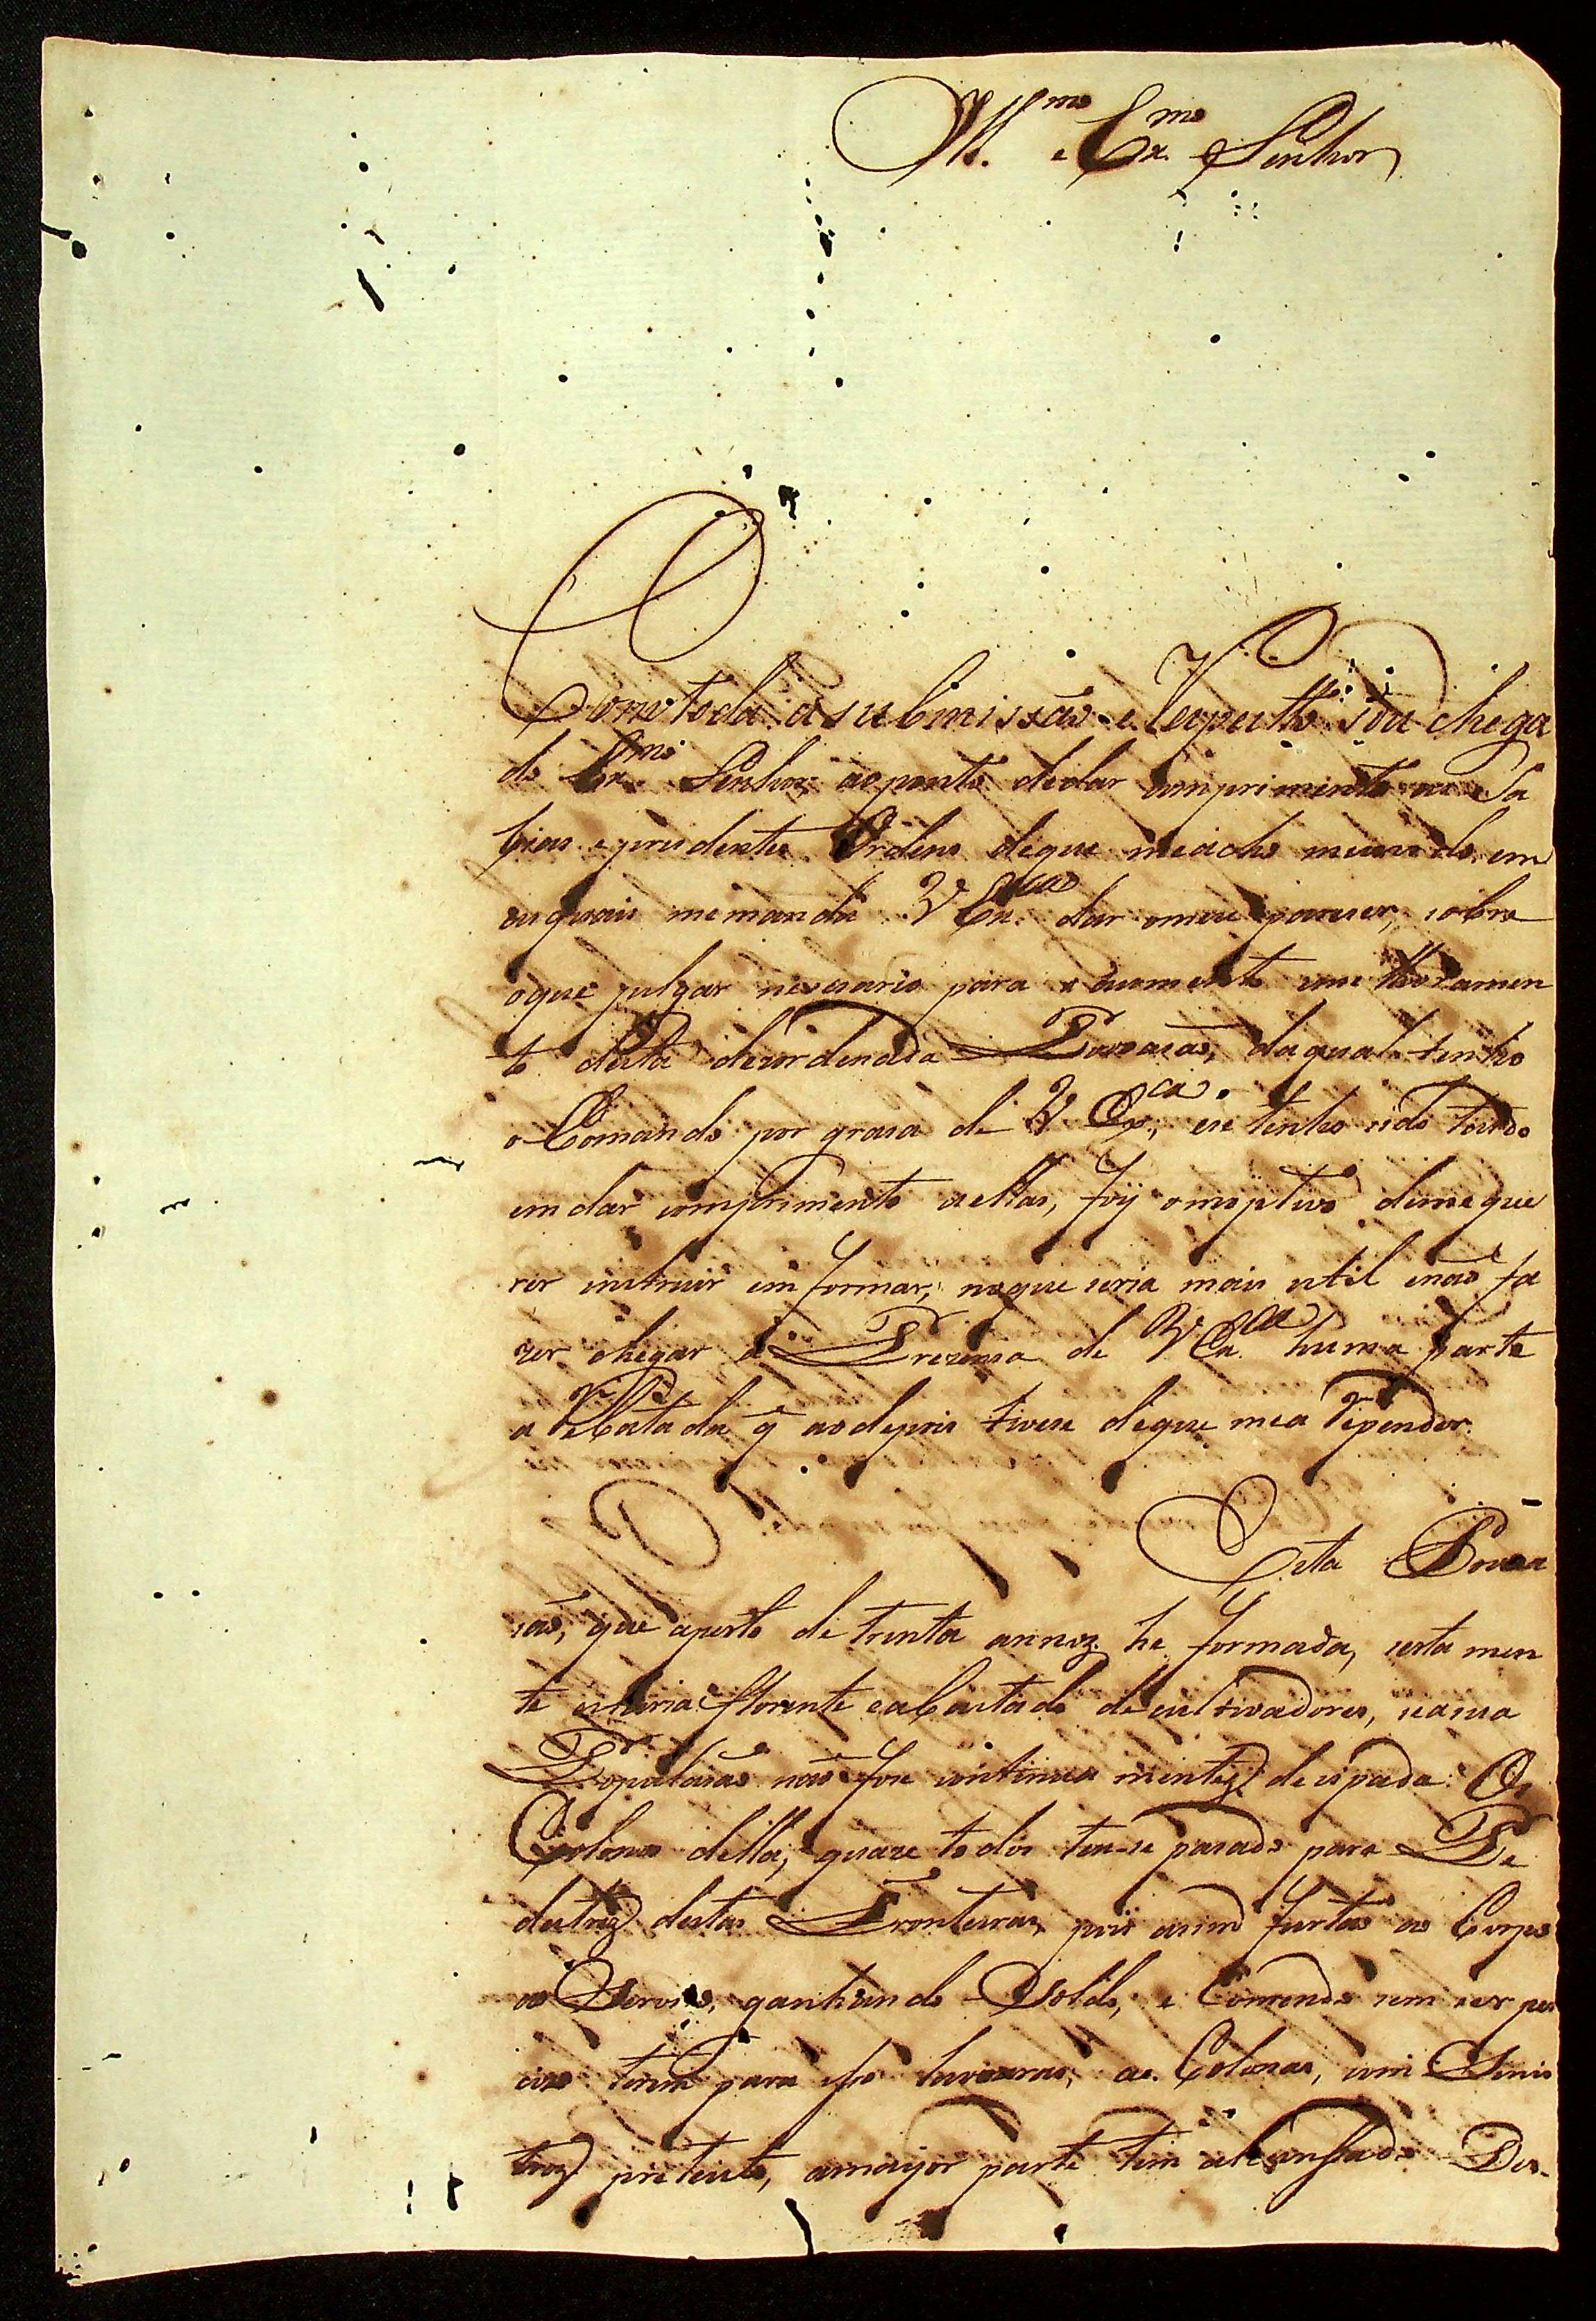 Ill.mo e Ex.mo Senhor
Com toda a submissaõ e Respeitto sou chega
do Ex.mo Senhor, ao ponto dedar comprimento as Sa
bias e prudentes Ordens deque meacho munido, em
asquais memanda V Ex.cia dar omeu pareser, sobre
oque julgar nesesario para o aumento emelhoramen
to desta dezordenada Povoasaõ, daqual tenho
o Comando por grasa de V Ex.ca, ese tenho sido tardo
em dar comprimento aellas, foij omoptivo deme que
rer instruir em formar, noque seria mais util enaõ fa
zer chegar á Prezensa de V Ex.ca huma parte
a Rebatada q̃ aodepois tivese deque mea Repender.
Esta Povoa
saõ, que aperto de trinta annoz he formada, serta men
te estaria florente eabastada decultivadores, seasua
Populasaõ naõ fose continua mente despada: Os
Colonos della, quaze todos tem-se pasado para Pe
destrez destas Fronteiras, pois asim furtaõ os Corpos
ao Servisso, ganhando Soldo, e Comendo sem ser pre
sizo terem para isso lavouras; as Colonas, com Sinis
troz pretextos, amayor parte tem alcansado Des-